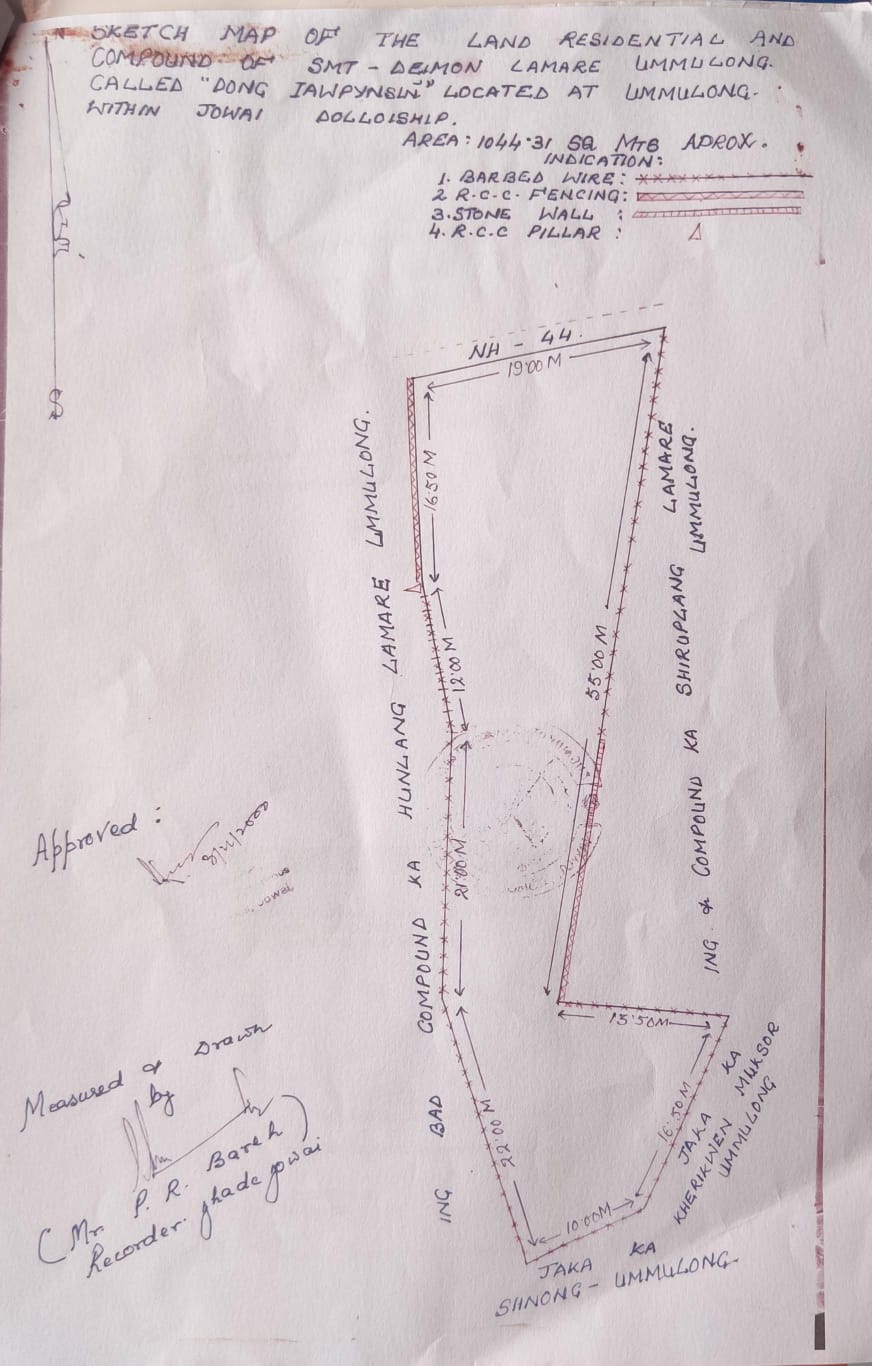 SKETCH MAP OF THE LAND RESIDENTIAL AND
COMPOUND OF SMT - DEIMON LAMARE UMMULONG.
CALLED "DONG IAWPYNSIN" LOCATED AT UMMULONG.
WITHIN JOWAI DOLLOISHIP.
AREA: 1044.31 SQ MTS APROX.
INDICATION:
1. BARBED WIRE:
2 R.C.C. FENCING:
3. STONE WALL :
4. R.C.C PILLAR :
N
S
NH - 44.
19.00 M
16.50 M
12.00 M
21.00 M
22.00 M
55.00 M
13.50M
16.50M
10.00M
ING BAD COMPOUND KA HUNLANG LAMARE UMMULONG.
ING & COMPOUND KA SHIRUPLANG LAMARE
UMMULONG.
JAKA KA
KHERIKWEN MUKSOR
UMMULONG
JAKA KA
SHNONG - UMMULONG.
Approved :
8/11/2000
Jowai
Measured & Drawn
by
(Mr. P. R. Bareh)
Recorder. Jowai